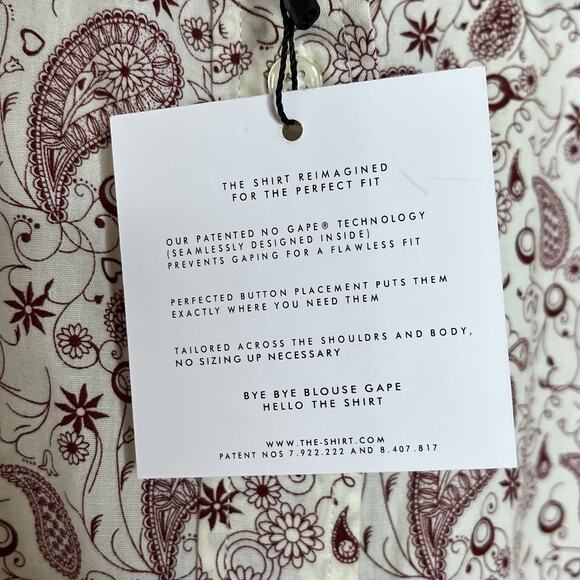 THE SHIRT REIMAGINED
FOR THE PERFECT FIT
OUR PATENTED NO GAPE® TECHNOLOGY
(SEAMLESSLY DESIGNED INSIDE)
PREVENTS GAPING FOR A FLAWLESS FIT
PERFECTED BUTTON PLACEMENT PUTS THEM
EXACTLY WHERE YOU NEED THEM
TAILORED ACROSS THE SHOULDRS AND BODY,
NO SIZING UP NECESSARY
BYE BYE BLOUSE GAPE
HELLO THE SHIRT
WWW.THE-SHIRT.COM
PATENT NOS 7.922.222 AND 8.407.817